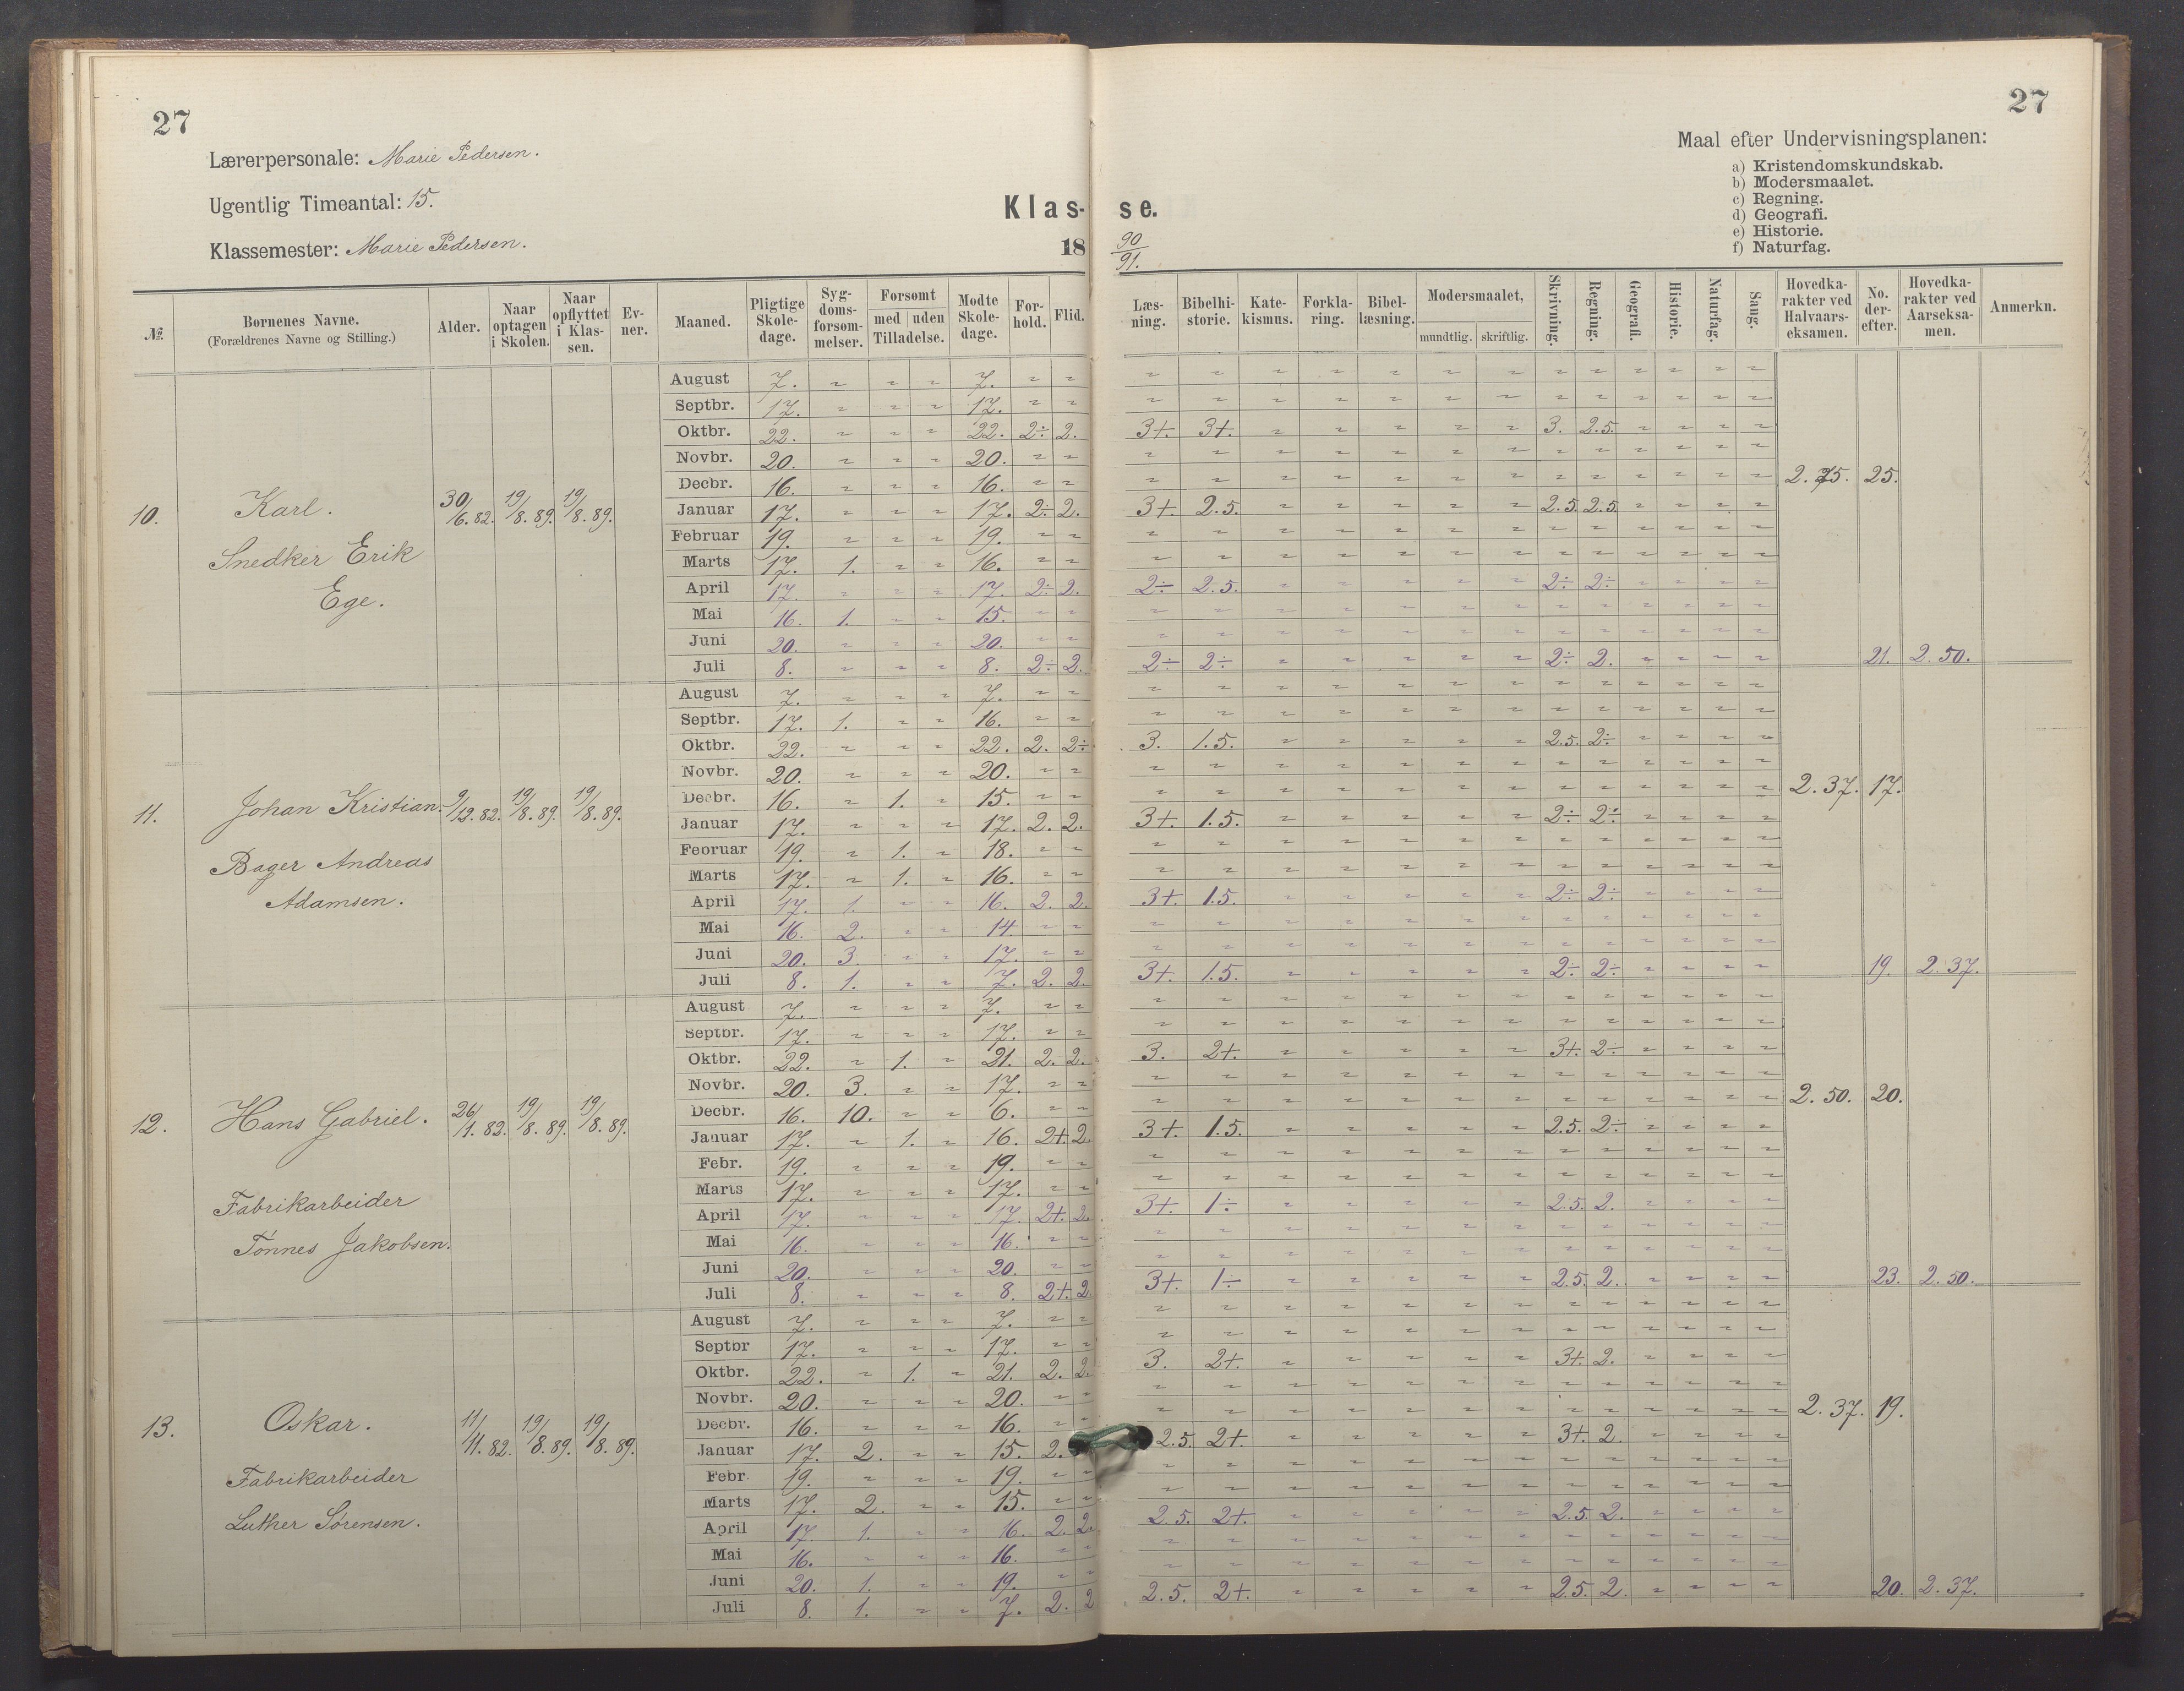 27
27
Lærerpersonale: Marie Pedersen.
Ugentlig Timeantal: 15.
Klassemester: Marie Pedersen.
Klas-se.
18 90/91.
Maal efter Undervisningsplanen:
a) Kristendomskundskab.
b) Modersmaalet.
c) Regning.
d) Geografi.
e) Historie.
f) Naturfag.
№ | Bornenes Navne. (Forældrenes Navne og Stilling.) | Alder. | Naar optagen i Skolen. | Naar opflyttet i Klassen. | Evner. | Maaned. | Pligtige Skoledage. | Sygdomsforsømmelser. | Forsømt med uden Tilladelse. | Mødte Skoledage. | Forhold. | Flid. | Læsning. | Bibelhistorie. | Katekismus. | Forklaring. | Bibellæsning. | Modersmaalet, mundtlig. skriftlig. | Skrivning. | Regning. | Geografi. | Historie. | Naturfag. | Sang. | Hovedkarakter ved Halvaarseksamen. | No. derefter. | Hovedkarakter ved Aarseksamen. | Anmerkn.
10. Karl. 30/6. 82. 19/8. 89. 19/8. 89.
Snedker Erik
Ege.
August 7. 7.
Septbr. 17. 17.
Oktbr. 22. 22. 2÷ 2. 3+. 3+. 3. 2.5.
Novbr. 20. 20.
Decbr. 16. 16. 2. 75. 25.
Januar 17. 17. 2÷ 2. 3+. 2.5. 2.5. 2.5.
Februar 19. 19.
Marts 17. 1. 16.
April 17. 17. 2÷ 2. 2÷ 2.5. 2÷ 2÷
Mai 16. 1. 15.
Juni 20. 20.
Juli 8. 8. 2÷ 2. 2÷ 2÷ 2÷ 2. 21. 2. 50.
11. Johan Kristian. 9/12. 82. 19/8. 89. 19/8. 89.
Bager Andreas
Adamsen.
August 7. 7.
Septbr. 17. 1. 16.
Oktbr. 22. 22. 2. 2÷ 3. 1.5. 2.5. 2÷
Novbr. 20. 20.
Decbr. 16. 1. 15. 2. 37. 17.
Januar 17. 17. 2. 2. 3+. 1.5. 2÷ 2÷
Februar 19. 1. 18.
Marts 17. 1. 16.
April 17. 1. 16. 2. 2. 3+. 1.5. 2÷ 2÷
Mai 16. 2. 14.
Juni 20. 3. 17.
Juli 8. 1. 7. 2. 2. 3+. 1.5. 2÷ 2÷ 19. 2. 37.
12. Hans Gabriel. 26/1. 82. 19/8. 89. 19/8. 89.
Fabrikarbeider
Tønnes Jakobsen.
August 7. 7.
Septbr. 17. 17.
Oktbr. 22. 1. 21. 2. 2. 3. 2+. 3+. 2÷
Novbr. 20. 3. 17.
Decbr. 16. 10. 6. 2. 50. 20.
Januar 17. 1. 16. 2+. 2. 3+. 1.5. 2.5. 2÷
Febr. 19. 19.
Marts 17. 17.
April 17. 17. 2+. 2. 3+. 1÷ 2.5. 2.
Mai 16. 16.
Juni 20. 20.
Juli 8. 8. 2+. 2 3+. 1÷ 2.5. 2. 23. 2. 50.
13. Oskar. 11/11. 82. 19/8. 89. 19/8. 89.
Fabrikarbeider
Luther Sørensen.
August 7. 7.
Septbr 17. 17.
Oktbr. 22. 1. 21. 2. 2. 3. 2+. 3+. 2.
Novbr. 20. 20.
Decbr. 16. 16. 2. 37. 19.
Januar 17. 2. 15. 2. 2.5. 2+. 3+. 2.
Febr 19. 19.
Marts 17. 2. 15.
April 17 1. 16. 2. 2. 2.5. 2+. 2.5. 2.
Mai 16. 16.
Juni 20. 1. 19.
Juli 8. 1. 7. 2. 2 2.5. 2+. 2.5. 2. 20. 2. 37.